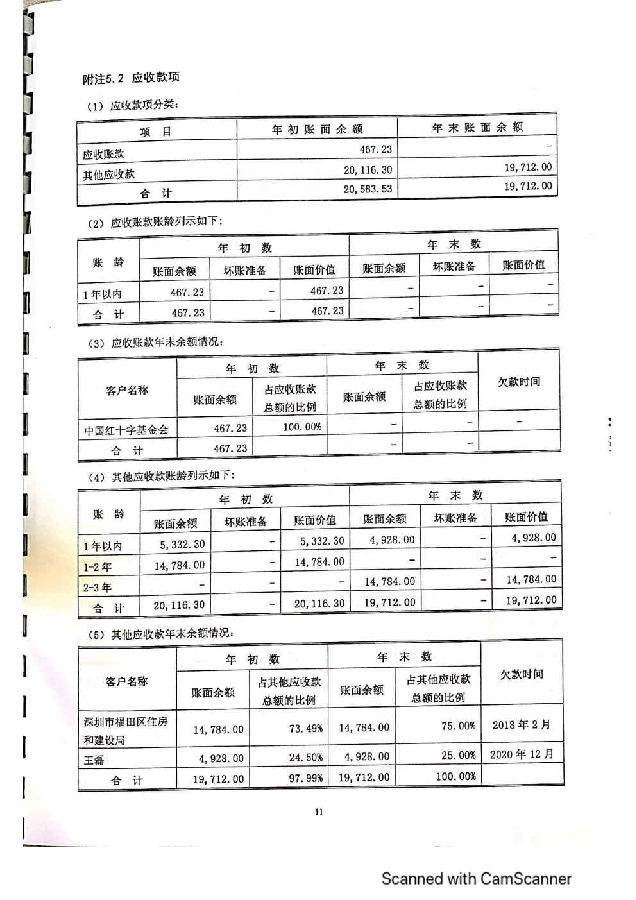 附注5.2 应收款项
(1) 应收款项分类：
项 目 年 初 账 面 余 额 年 末 账 面 余 额
应收账款 467.23 -
其他应收款 20,116.30 19,712.00
合 计 20,583.53 19,712.00
(2) 应收账款账龄列示如下：
账 龄 年 初 数 年 末 数
账面余额 坏账准备 账面价值 账面余额 坏账准备 账面价值
1年以内 467.23 - 467.23 - - -
合 计 467.23 - 467.23 - - -
(3) 应收账款年末余额情况：
客户名称 年 初 数 年 末 数 欠款时间
账面余额 占应收账款总额的比例 账面余额 占应收账款总额的比例
中国红十字基金会 467.23 100.00% - - -
合 计 467.23 - -
(4) 其他应收款账龄列示如下：
账 龄 年 初 数 年 末 数
账面余额 坏账准备 账面价值 账面余额 坏账准备 账面价值
1年以内 5,332.30 - 5,332.30 4,928.00 - 4,928.00
1-2年 14,784.00 - 14,784.00 - - -
2-3年 - - - 14,784.00 - 14,784.00
合 计 20,116.30 - 20,116.30 19,712.00 - 19,712.00
(5) 其他应收款年末余额情况：
客户名称 年 初 数 年 末 数 欠款时间
账面余额 占其他应收款总额的比例 账面余额 占其他应收款总额的比例
深圳市福田区住房和建设局 14,784.00 73.49% 14,784.00 75.00% 2018年2月
王磊 4,928.00 24.50% 4,928.00 25.00% 2020年12月
合 计 19,712.00 97.99% 19,712.00 100.00%
11
Scanned with CamScanner